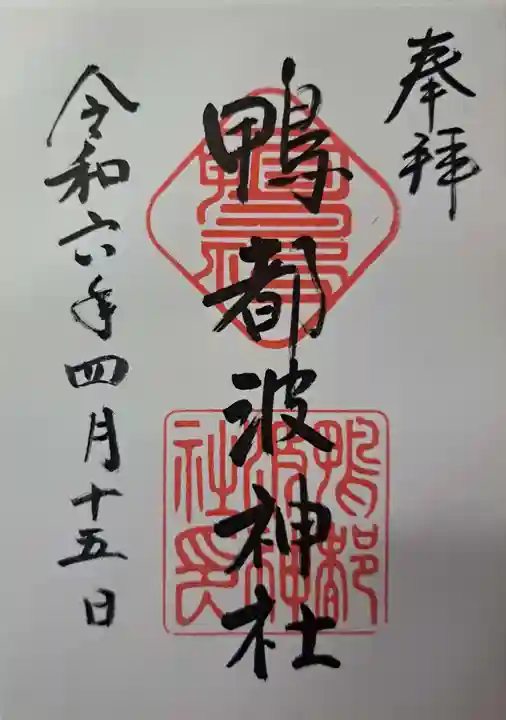 奉拝
鴨都波神社
鴨都波神社印
令和六年四月十五日